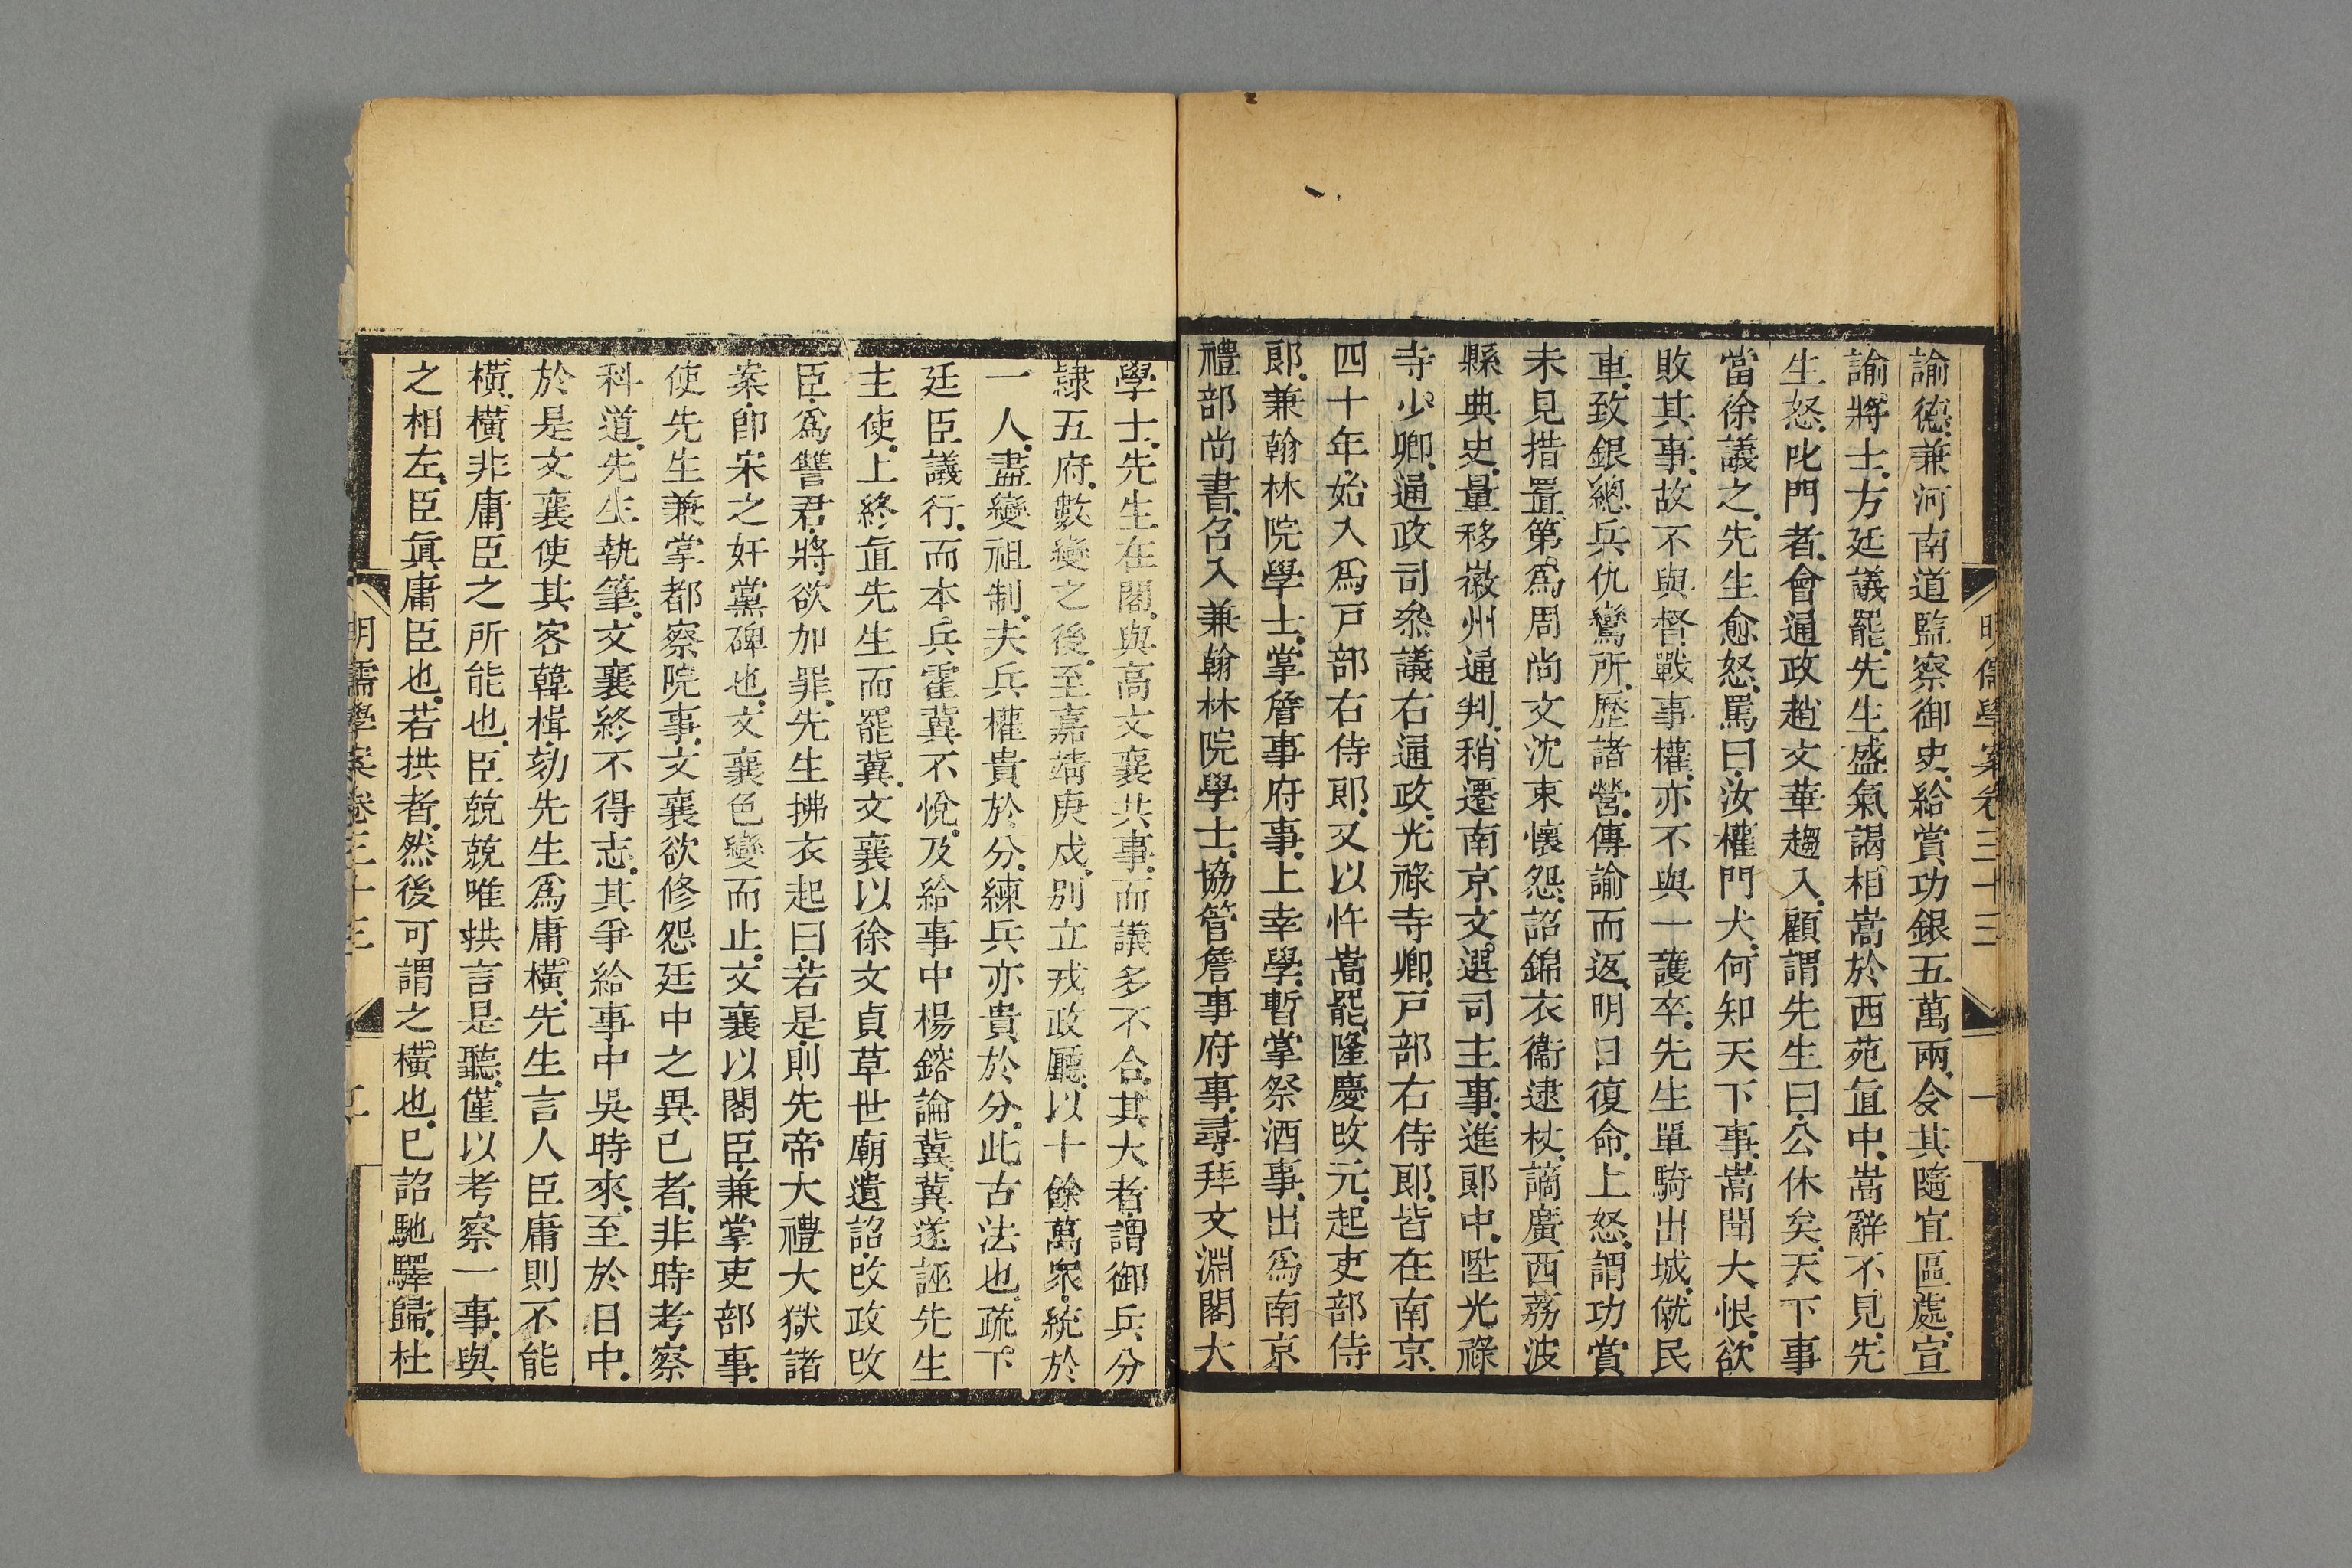 諭德兼河南道監察御史給賞功銀五萬兩令其隨宜區處宣
諭將士方廷議罷先生盛氣謁相嵩於西苑直中嵩辭不見先
生怒叱門者會通政趙文華趨入顧謂先生曰公休矣天下事
當徐議之先生愈怒罵曰汝權門犬何知天下事嵩聞大恨欲
敗其事故不與督戰事權亦不與一護卒先生單騎出城僦民
車致銀總兵仇鸞所歷諸營傳諭而返明日復命上怒謂功賞
未見措置第爲周尚文沈束懷怨詔錦衣衞逮杖謫廣西荔波
縣典史量移徽州通判稍遷南京文選司主事進郞中陞光祿
寺少卿通政司叅議右通政光祿寺卿戸部右侍郞皆在南京
四十年始入爲戸部右侍郞又以忤嵩罷隆慶改元起吏部侍
郞兼翰林院學士掌詹事府事上幸學暫掌祭酒事出爲南京
禮部尚書召入兼翰林院學士協管詹事府事尋拜文淵閣大
明儒學案卷三十三
學士先生在閣與高文襄共事而議多不合其大者謂御兵分
隷五府數變之後至嘉靖庚戍別立戎政廳以十餘萬衆統於
一人盡變祖制夫兵權貴於分練兵亦貴於分此古法也疏下
廷臣議行而本兵霍冀不悅及給事中楊鎔論冀冀遂誣先生
主使上終直先生而罷冀文襄以徐文貞草世廟遺詔改政改
臣爲讐君將欲加罪先生拂衣起曰若是則先帝大禮大獄諸
案卽宋之奸黨碑也文襄色變而止文襄以閣臣兼掌吏部事
使先生兼掌都察院事文襄欲修怨廷中之異已者非時考察
科道先生執筆文襄終不得志其爭給事中吳時來至於日中
於是文襄使其客韓楫劾先生爲庸橫先生言人臣庸則不能
橫橫非庸臣之所能也臣兢兢唯拱言是聽僅以考察一事與
之相左臣眞庸臣也若拱者然後可謂之橫也已詔馳驛歸杜
明儒學案卷三十三